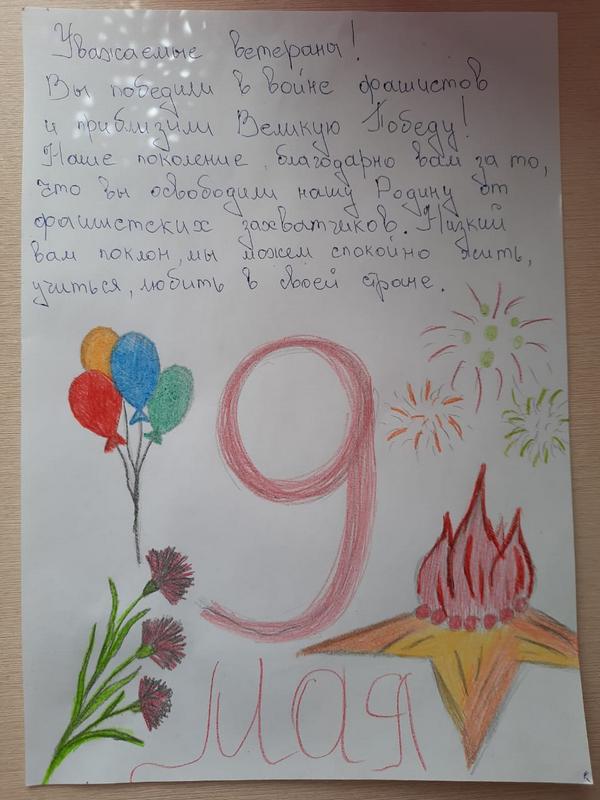 Уважаемые ветераны!
Вы победили в войне фашистов
и приблизили Великую Победу!
Наше поколение благодарно вам за то,
что вы освободили нашу Родину от
фашистских захватчиков. Низкий
вам поклон, мы можем спокойно жить,
учиться, любить в своей стране.
9
мая